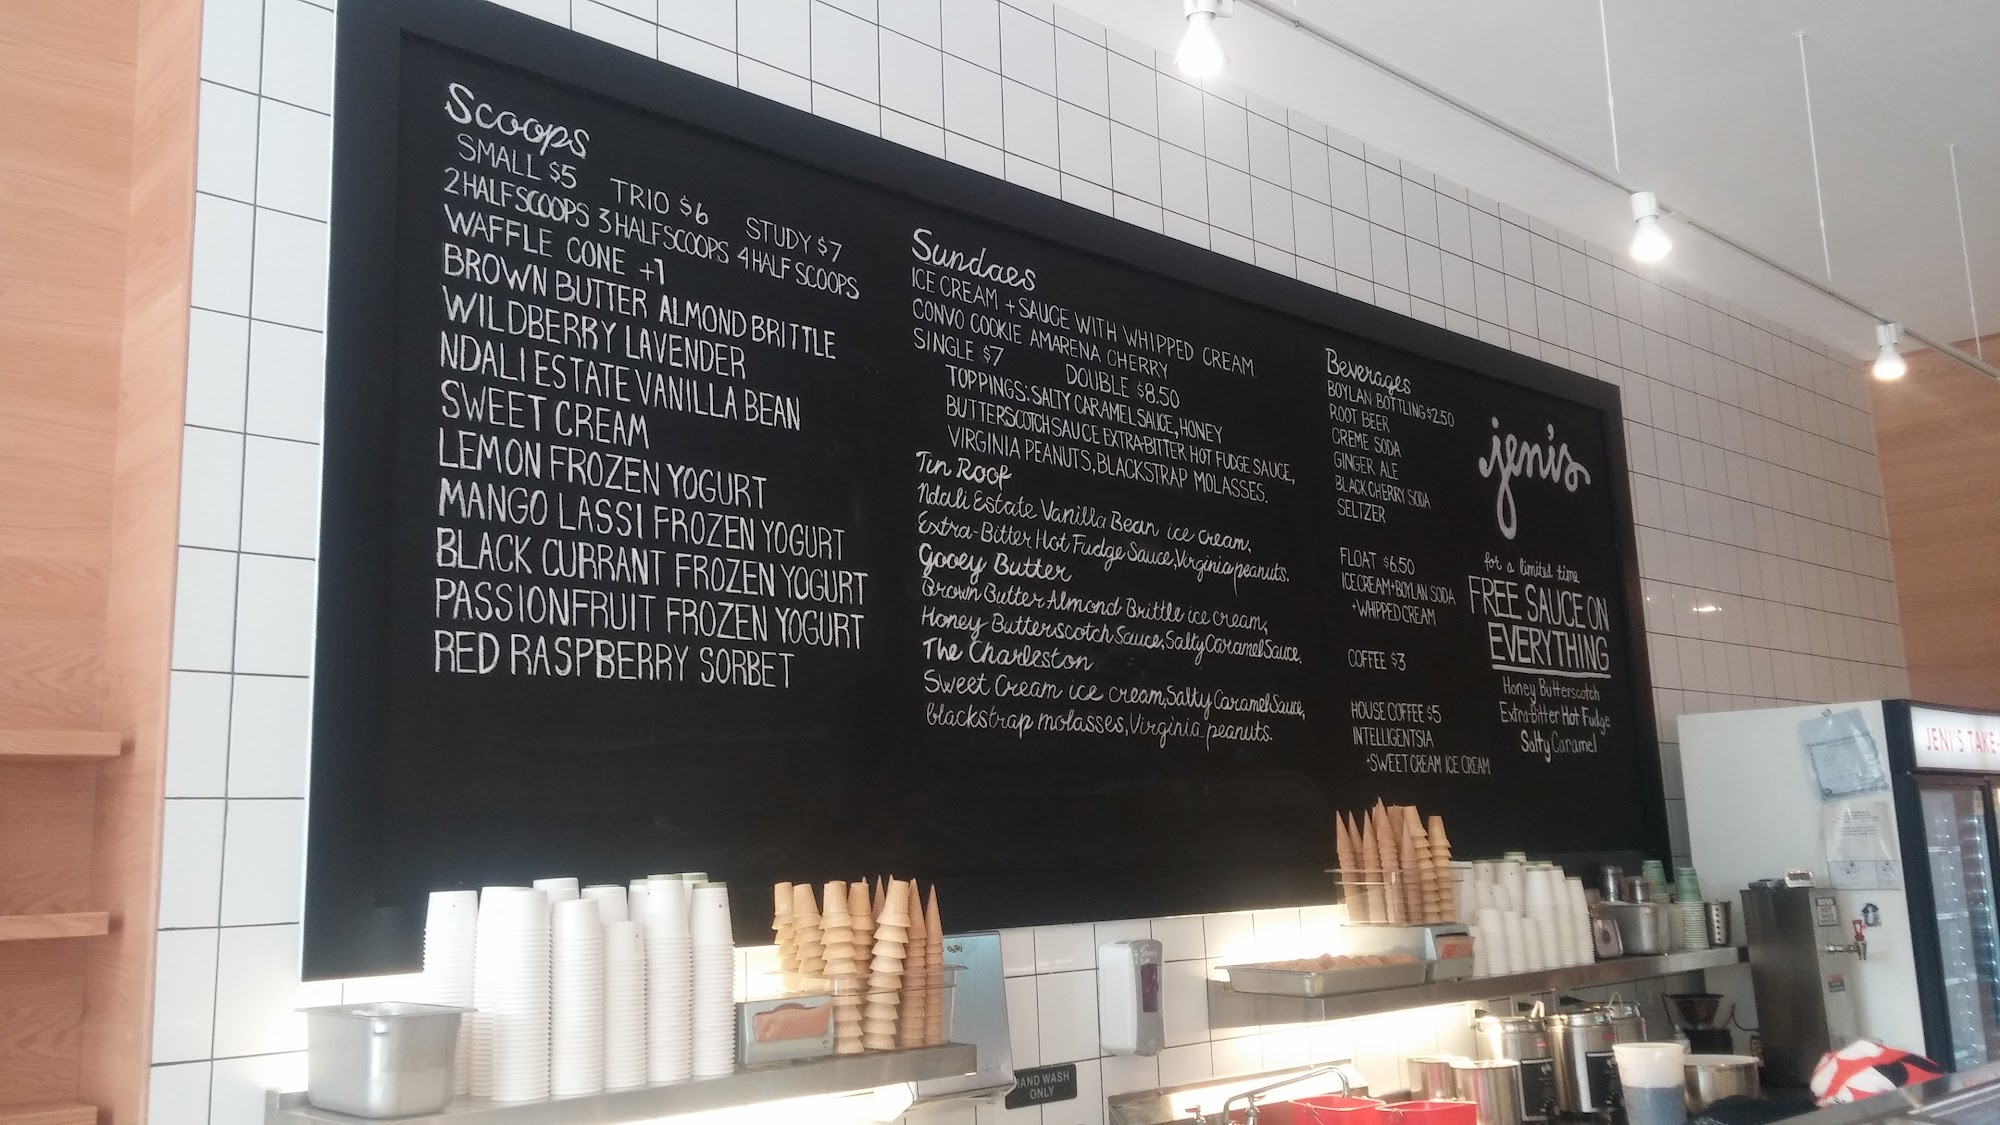 Scoops
SMALL $5 TRIO $6 STUDY $7
2 HALF SCOOPS 3 HALF SCOOPS 4 HALF SCOOPS
WAFFLE CONE +1
BROWN BUTTER ALMOND BRITTLE
WILDBERRY LAVENDER
NDALI ESTATE VANILLA BEAN
SWEET CREAM
LEMON FROZEN YOGURT
MANGO LASSI FROZEN YOGURT
BLACK CURRANT FROZEN YOGURT
PASSIONFRUIT FROZEN YOGURT
RED RASPBERRY SORBET
Sundaes
ICE CREAM + SAUCE WITH WHIPPED CREAM.
CONVO COOKIE AMARENA CHERRY
SINGLE $7 DOUBLE $8.50
TOPPINGS: SALTY CARAMEL SAUCE, HONEY
BUTTERSCOTCH SAUCE EXTRA-BITTER HOT FUDGE SAUCE,
VIRGINIA PEANUTS, BLACKSTRAP MOLASSES.
Tin Roof
Ndali Estate Vanilla Bean ice cream,
Extra-Bitter Hot Fudge Sauce, Virginia peanuts.
Gooey Butter
Brown Butter Almond Brittle ice cream,
Honey Butterscotch Sauce, Salty Caramel Sauce.
The Charleston
Sweet Cream ice cream, Salty Caramel Sauce,
blackstrap molasses, Virginia peanuts.
Beverages
BOYLAN BOTTLING $2.50
ROOT BEER
CREME SODA
GINGER ALE
BLACK CHERRY SODA
SELTZER
FLOAT $6.50
ICE CREAM + BOYLAN SODA
+ WHIPPED CREAM
COFFEE $3
HOUSE COFFEE $5
INTELLIGENTSIA
+SWEET CREAM ICE CREAM
jeni's
for a limited time
FREE SAUCE ON
EVERYTHING
Honey Butterscotch
Extra-Bitter Hot Fudge
Salty Caramel
JENI'S TAKE-
HAND WASH
ONLY